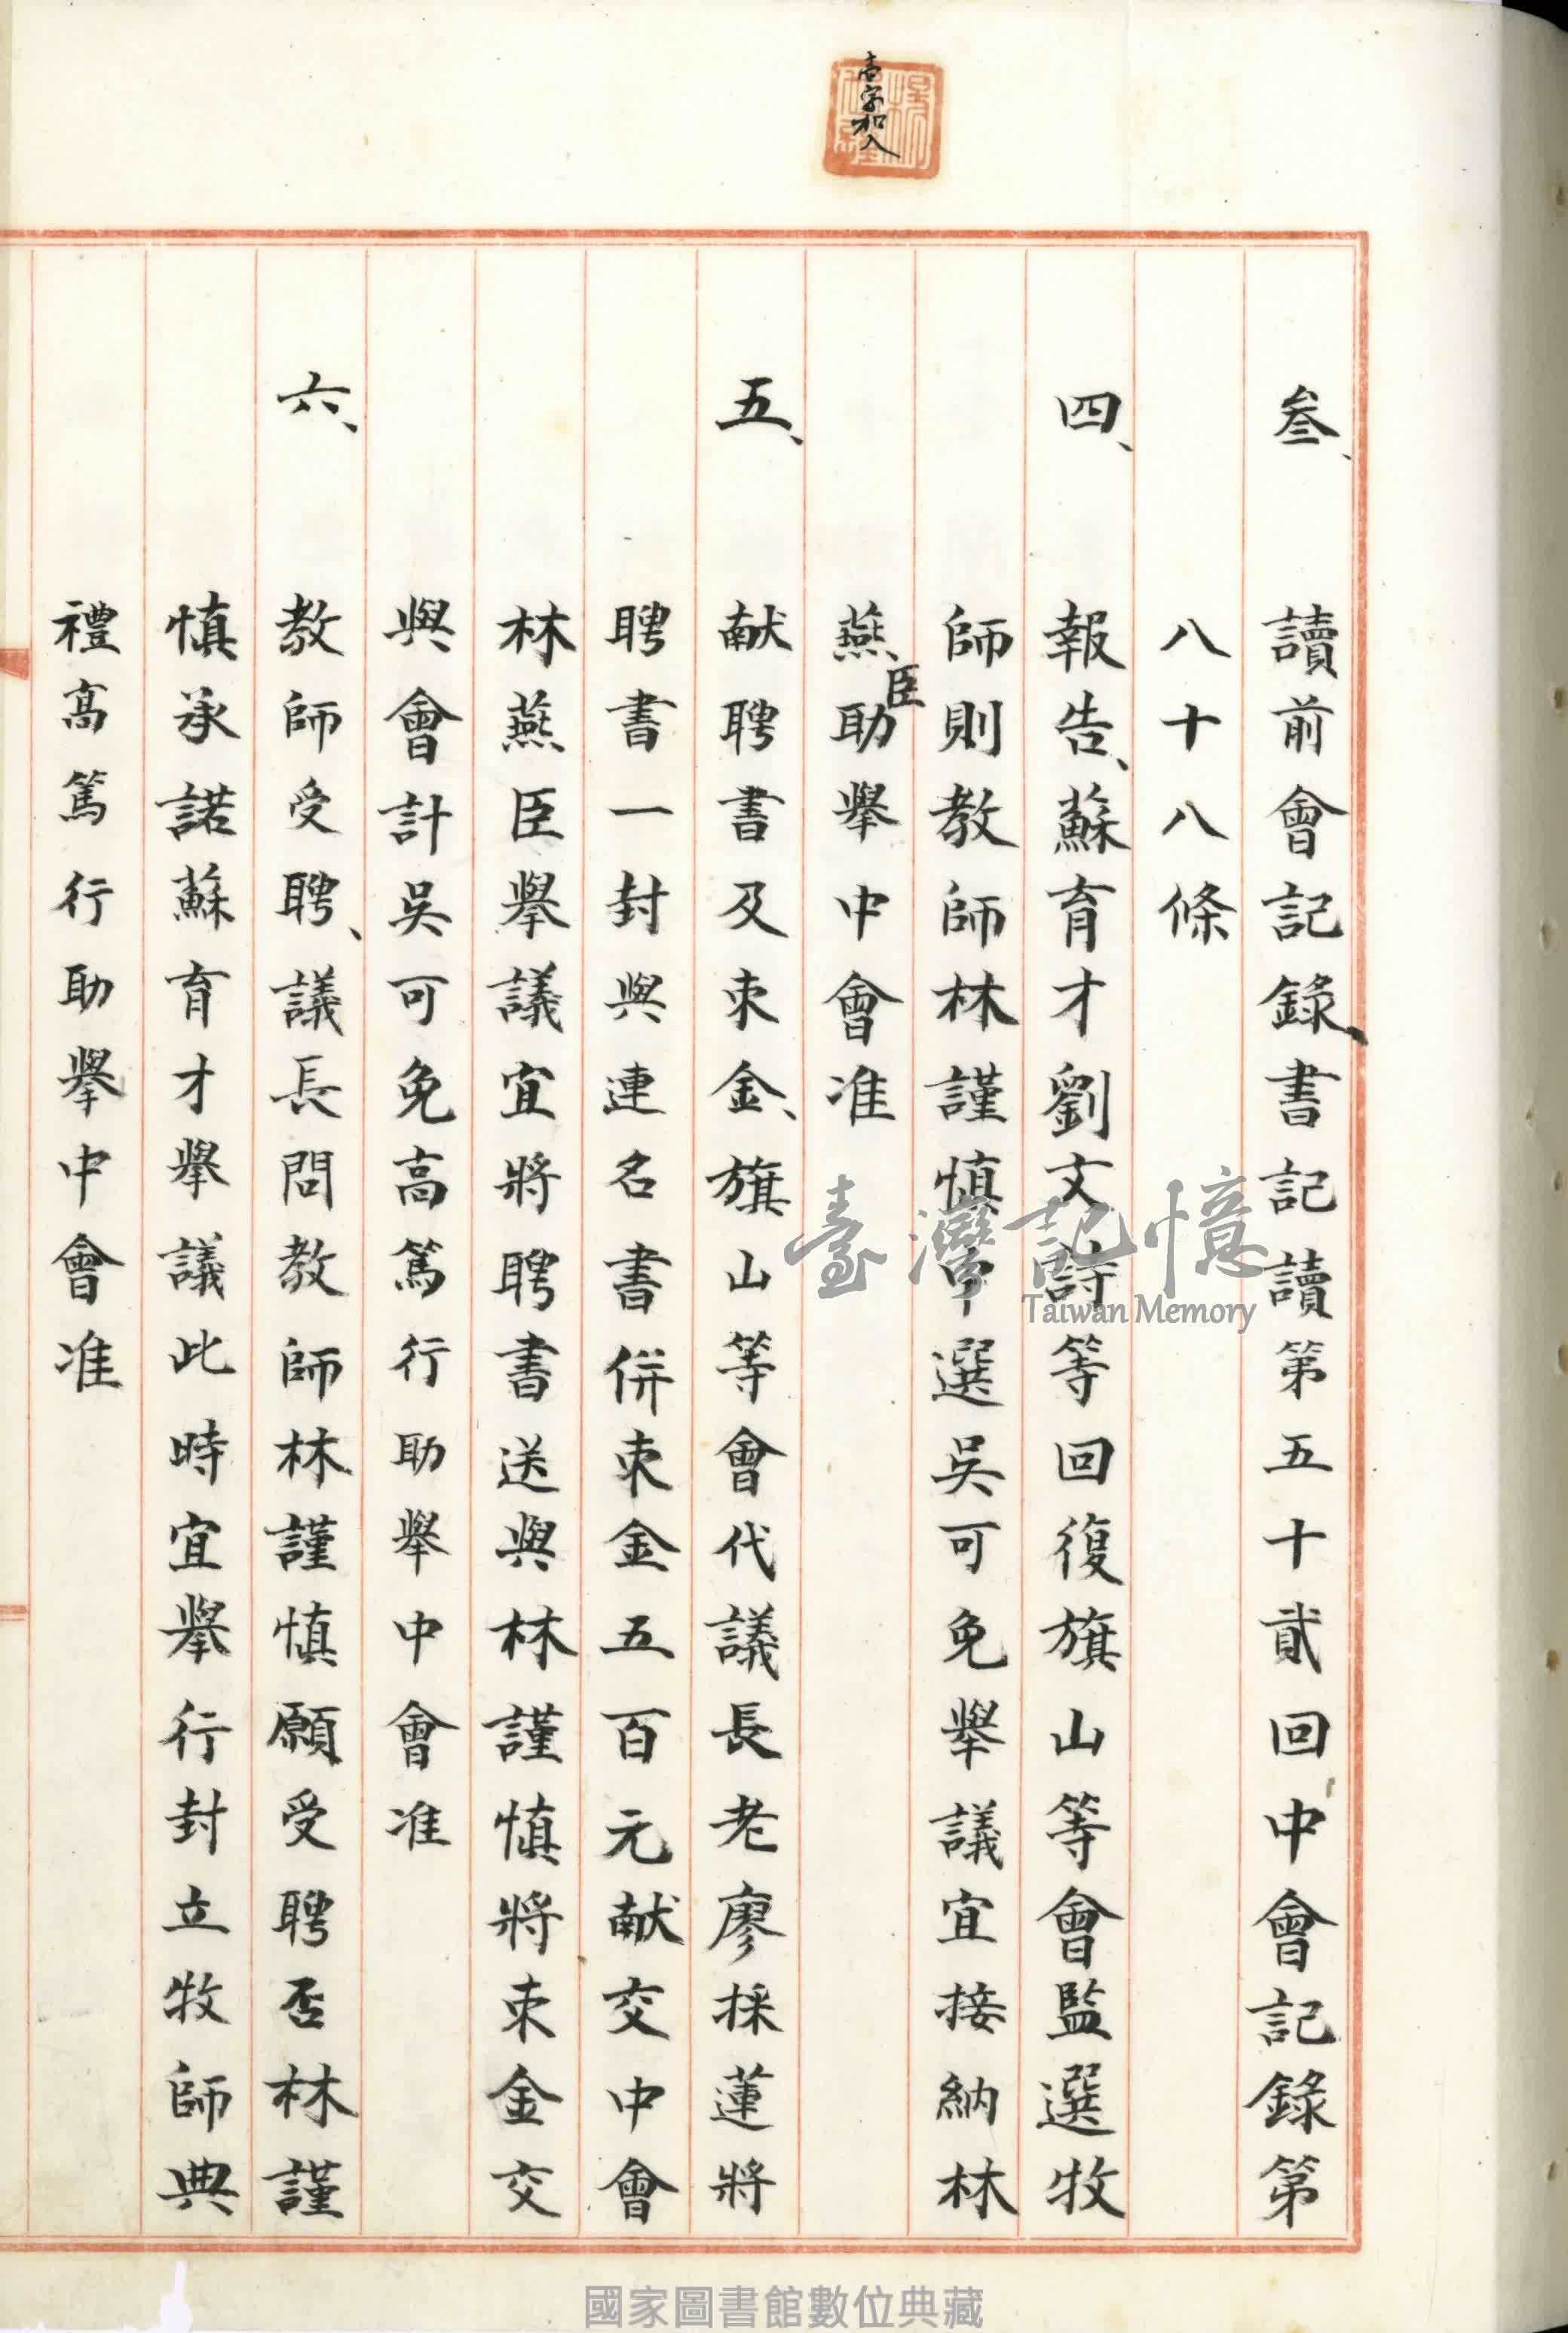 壹字加入
叁、讀前會記錄、書記讀第五十貳回中會記錄第
八十八條
四、報告、蘇育才劉文詩等回復旗山等會監選牧
師則教師林謹慎中選吳可免舉議宜接納林
燕臣助舉中會准
五、献聘書及束金、旗山等會代議長老廖採蓮將
聘書一封與連名書併束金五百元献交中會
林燕臣舉議宜將聘書送與林謹慎將束金交
與會計吳可免高篤行助舉中會准
六、教師受聘、議長問教師林謹慎願受聘否林謹
慎承諾蘇育才舉議此時宜舉行封立牧師典
禮高篤行助舉中會准
臺灣記憶
Taiwan Memory
國家圖書館數位典藏